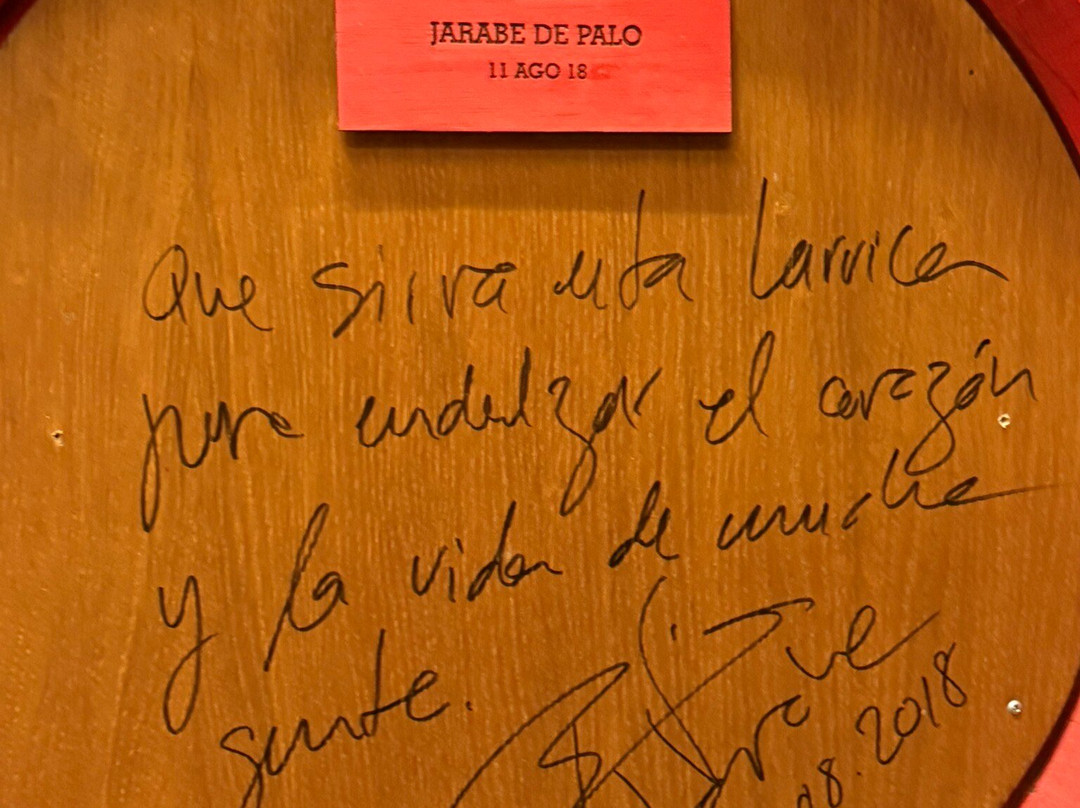 JARABE DE PALO
11 AGO 18
Que sirva esta barrica
para endulzar el corazón
y la vida de mucha
gente.
08.2018